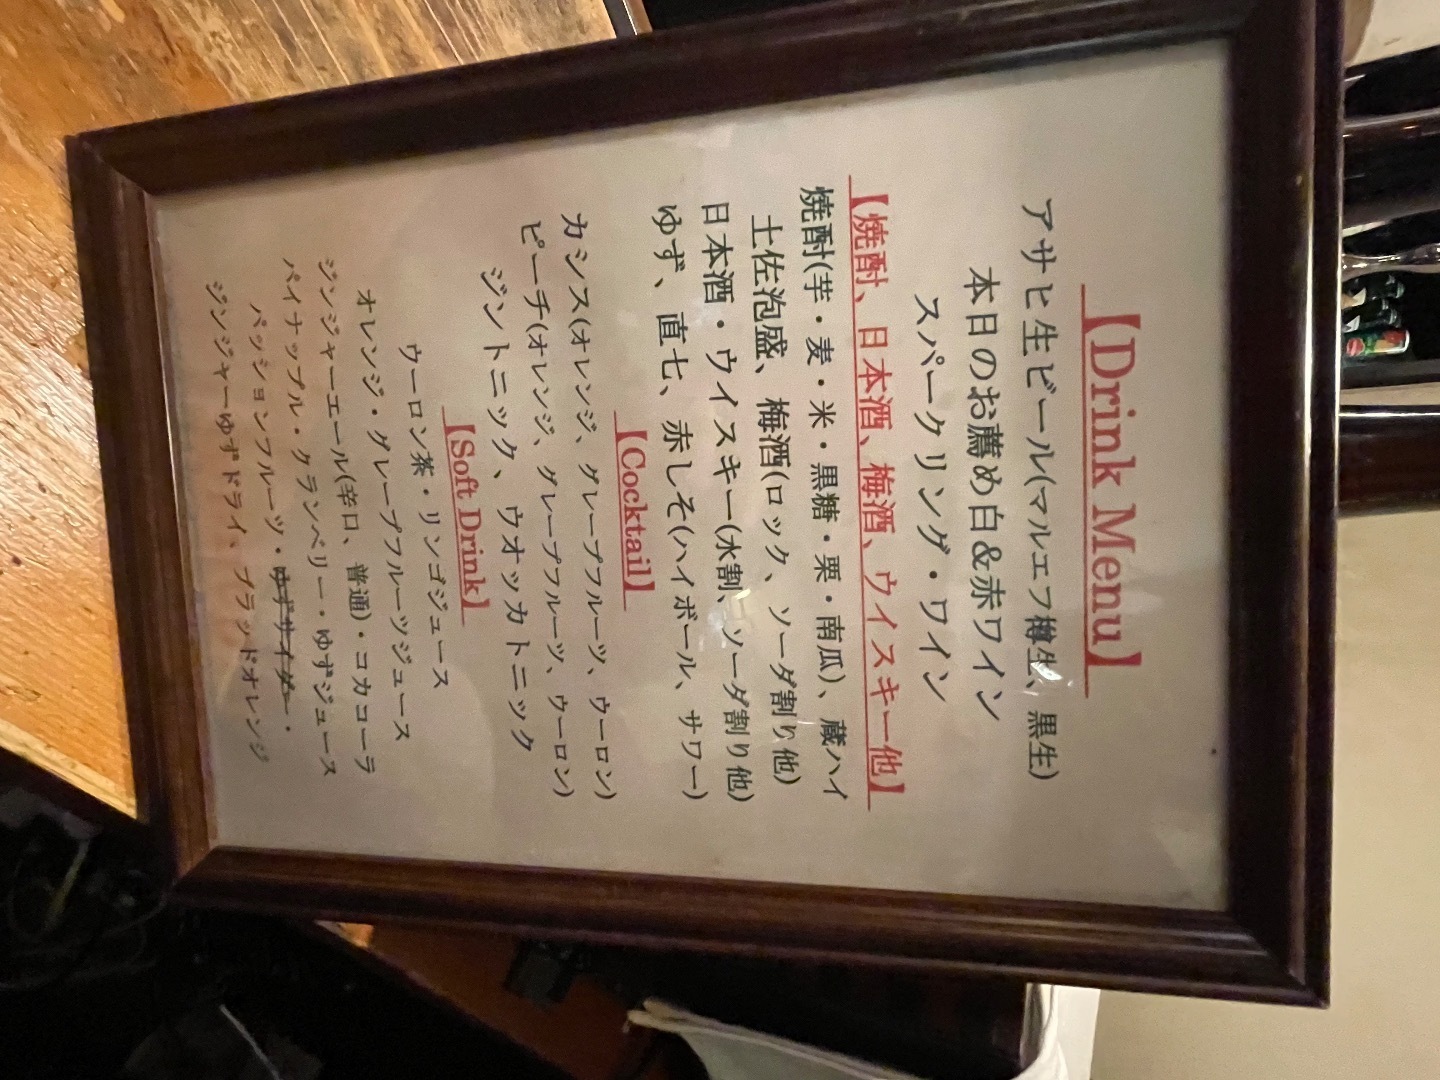 【Drink Menu】
アサヒ生ビール(マルエフ樽生、黒生)
本日のお薦め白&赤ワイン
スパークリング・ワイン
【焼酎、日本酒、梅酒、ウイスキー他】
焼酎(芋・麦・米・黒糖・栗・南瓜)、蔵ハイ
土佐泡盛、梅酒(ロック、ソーダ割り他)
日本酒・ウイスキー(水割、ソーダ割り他)
ゆず、直七、赤しそ(ハイボール、サワー)
【Cocktail】
カシス(オレンジ、グレープフルーツ、ウーロン)
ピーチ(オレンジ、グレープフルーツ、ウーロン)
ジントニック、ウオッカトニック
【Soft Drink】
ウーロン茶・リンゴジュース
オレンジ・グレープフルーツジュース
ジンジャーエール(辛口、普通)・コカコーラ
パイナップル・クランベリー・ゆずジュース
パッションフルーツ・ゆずサイダー・
ジンジャーゆずドライ、ブラッドオレンジ